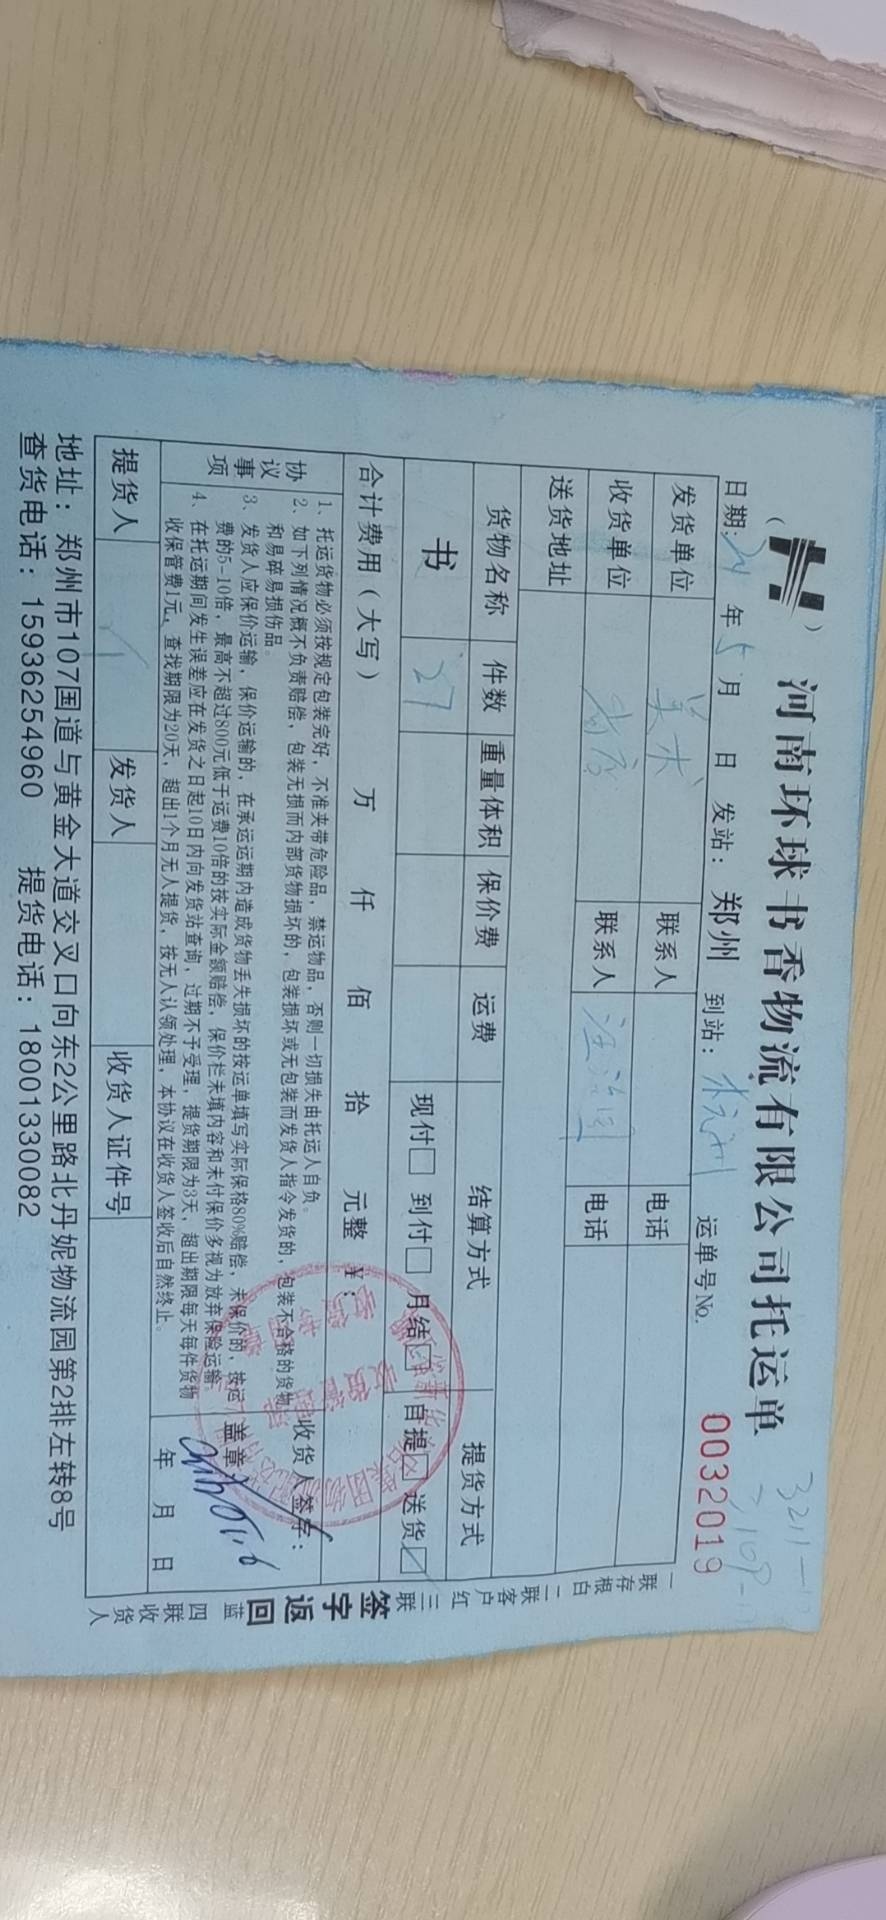 河南环球书香物流有限公司托运单
日期: 21 年 5 月 日 发站: 郑州 到站: 杭州 运单号No. 0032019
发货单位 美术 联系人 电话
收货单位 省店 联系人 电话
送货地址
货物名称 件数 重量体积 保价费 运费 结算方式 提货方式
书 27 现付□ 到付□ 月结□ 自提□ 送货☑
合计费用(大写) 万 仟 佰 拾 元整 ¥:
协议事项
1、托运货物必须按规定包装完好,不准夹带危险品,禁运物品,否则一切损失由托运人自负。
2、如下列情况概不负责赔偿,包装无损而内部货物损坏的,包装损坏或无包装而发货人指令发货的,包装不合格的货物
和易碎易损伤品。
3、发货人应保价运输,保价运输的,在承运运期内造成货物丢失损坏的按运单填写实际保格80%赔偿,未保价的,按运
费的5-10倍,最高不超过800元低于运费10倍的按实际金额赔偿,保价栏未填内容和未付保价多视为放弃保险运输。
4、在托运期间发生误差应在发货之日起10日内向发货站查询,过期不予受理,提货期限为3天,超出期限每天每件货物
收保管费1元,查找期限为20天,超出1个月无人提货,按无人认领处理,本协议在收货人签收后自然终止。
收货人签字:
盖章
年 月 日
提货人 发货人 收货人证件号
地址:郑州市107国道与黄金大道交叉口向东2公里路北丹妮物流园第2排左转8号
查货电话:15936254960 提货电话:18001330082
一联存根白 二联客户红 三联签字返回蓝 四联收货人